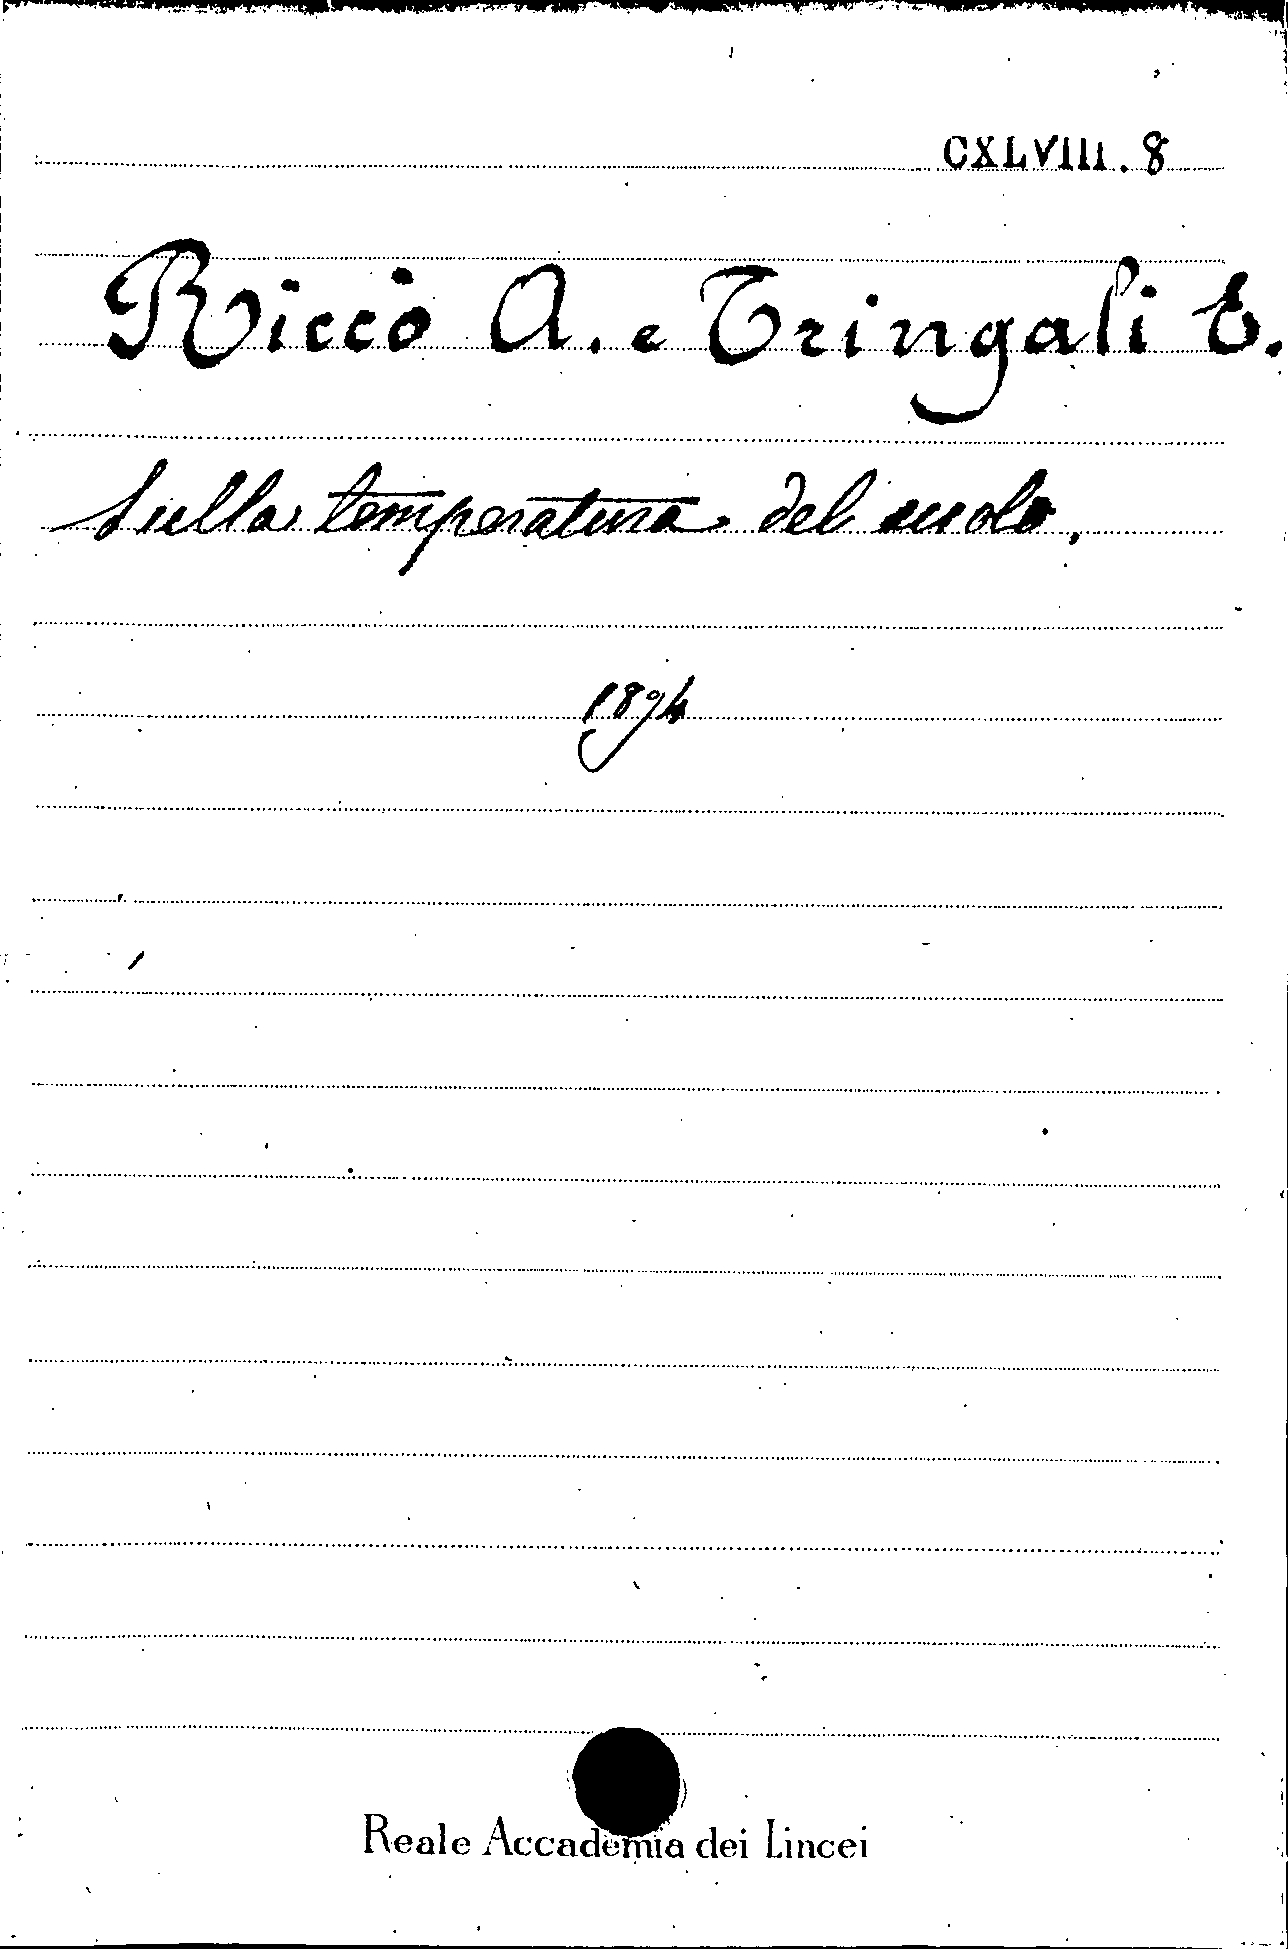 CXLVIII. 8
Riccò A. e Tringali E.
Sulla temperatura del suolo.
1894
Reale Accademia dei Lincei